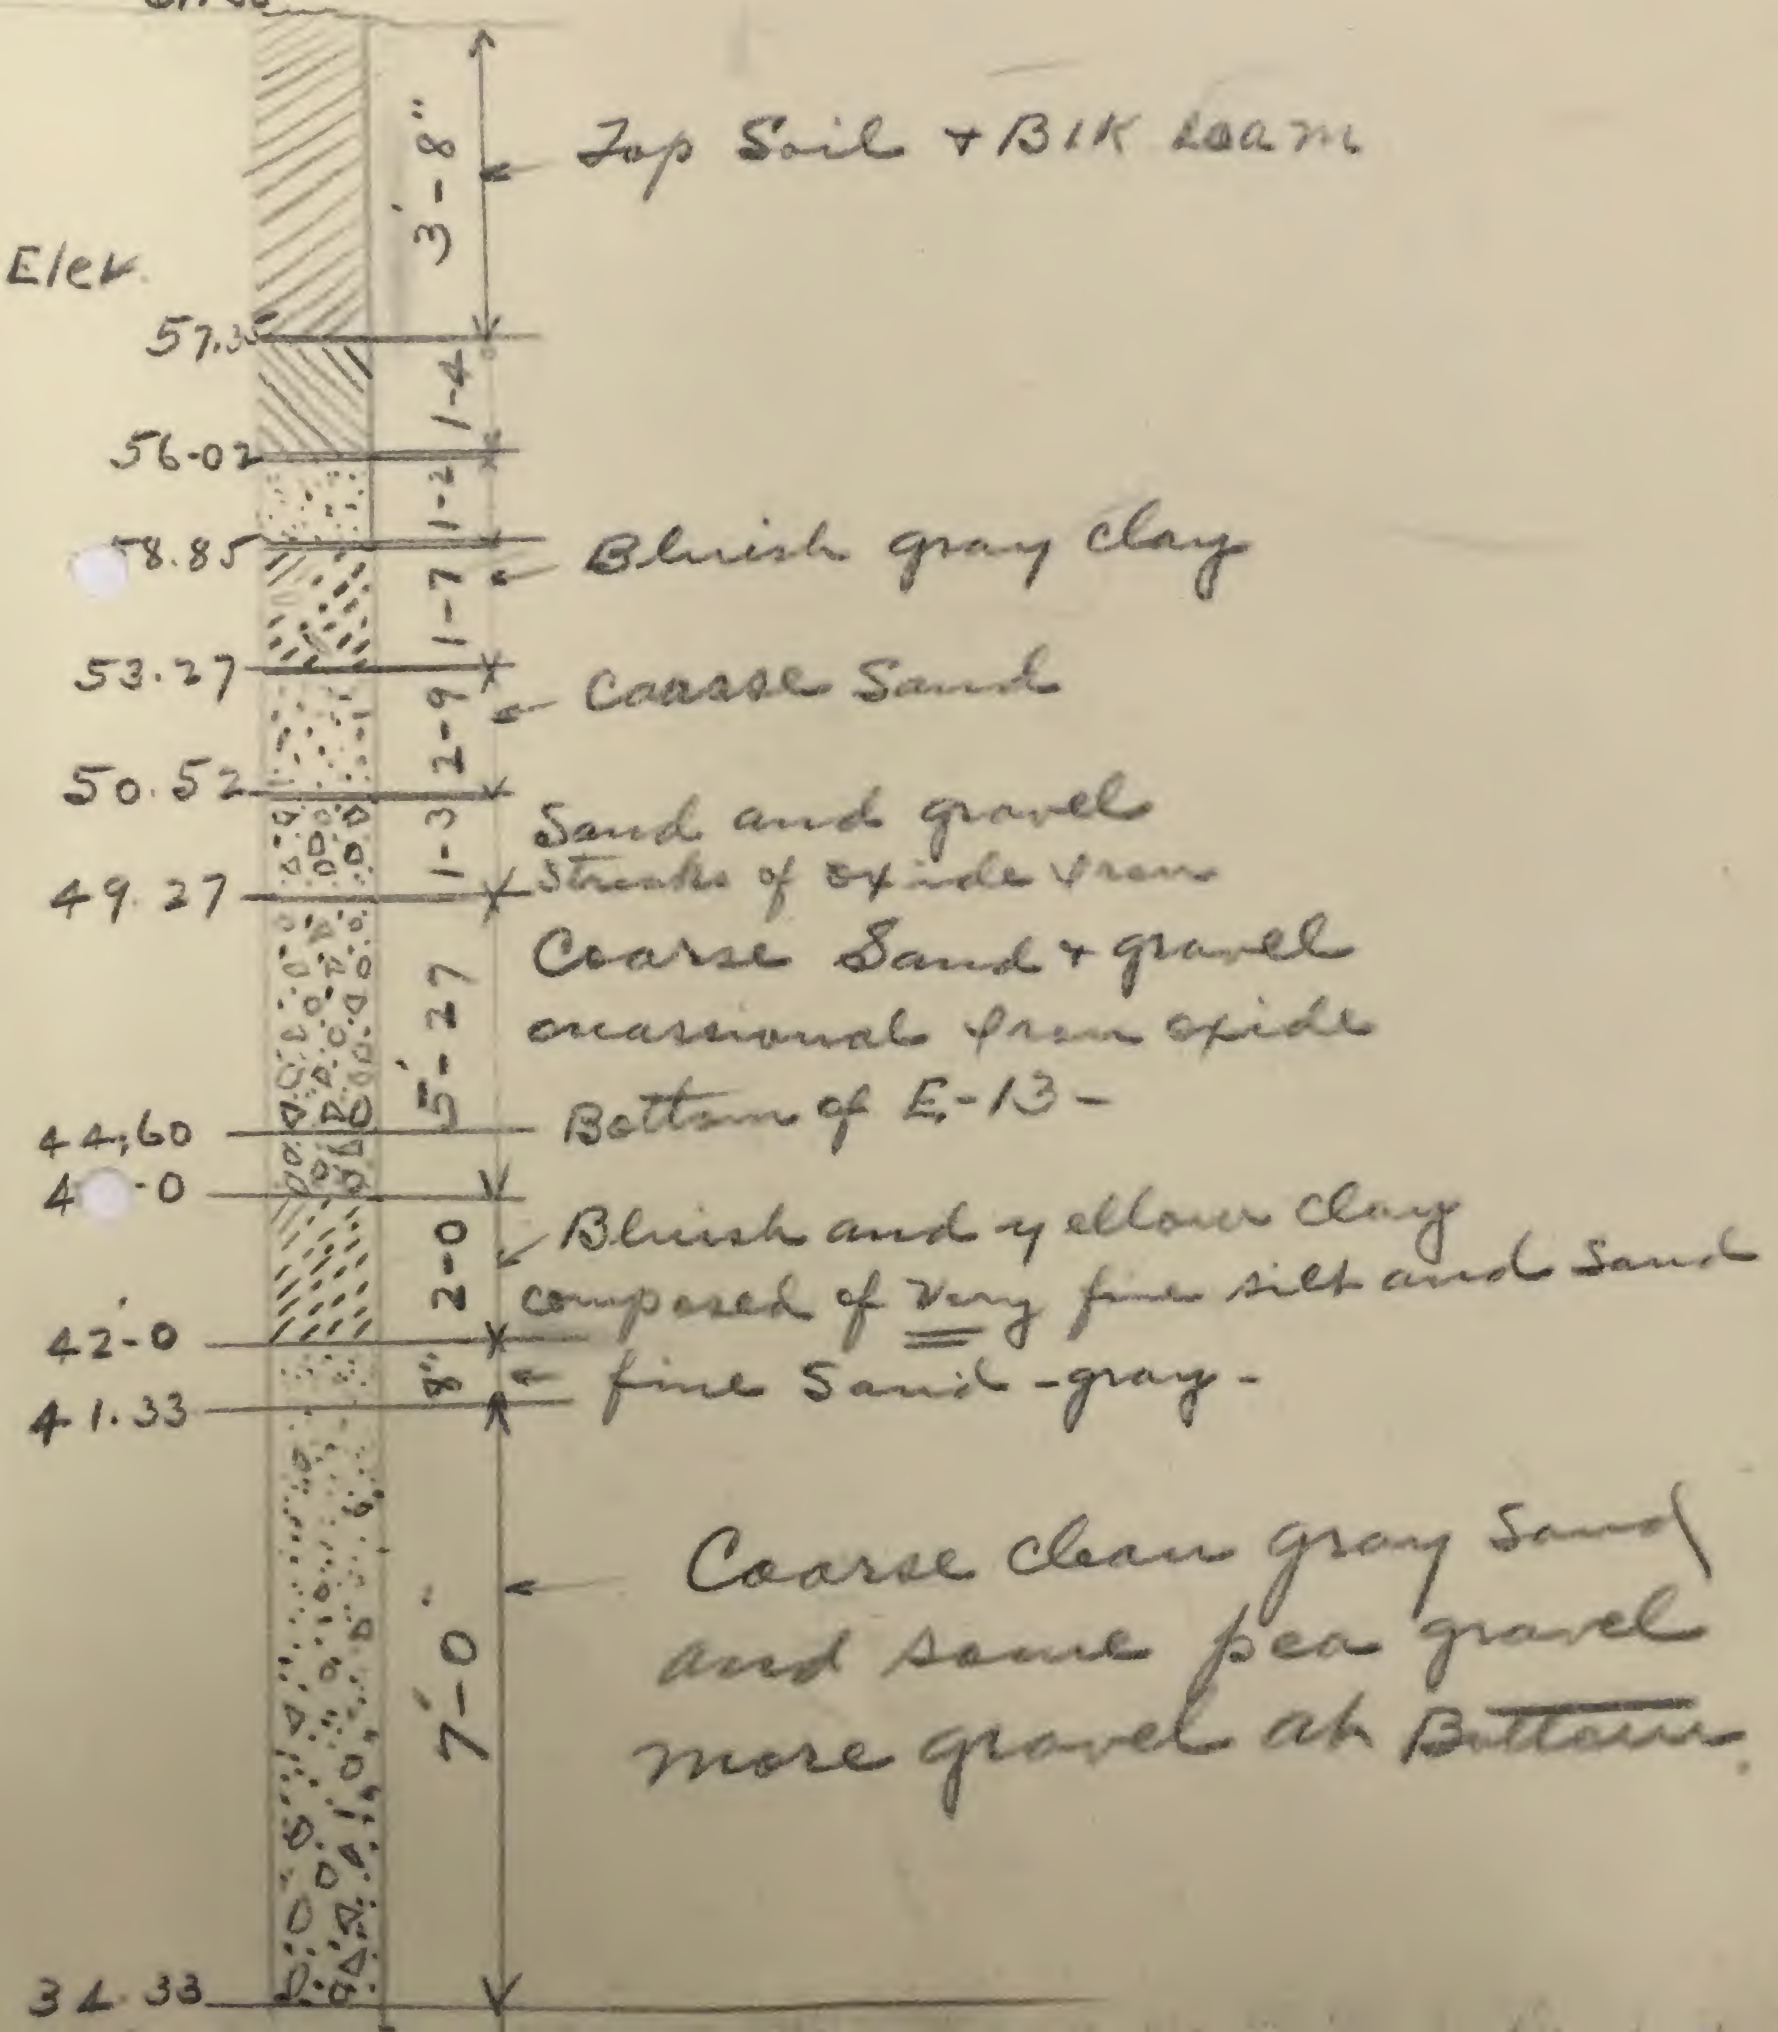 3'-8"
Top Soil + Blk Loam
Elev.
57.35
1-4
56-02
1-2
58.85
Bluish gray clay
1-7
53.27
Coarse Sand
2-9
50.52
Sand and gravel
1-3
Streaks of oxide iron
49.27
Coarse Sand + gravel
5'-27
occassional iron oxide
Bottom of E-13-
44.60
4 -0
Bluish and yellow clay
2-0
composed of Very fine silt and Sand
42'-0
8"
fine Sand -gray-
41.33
Coarse clean gray Sand
7'-0"
and some pea gravel
more gravel at Bottom.
34.33